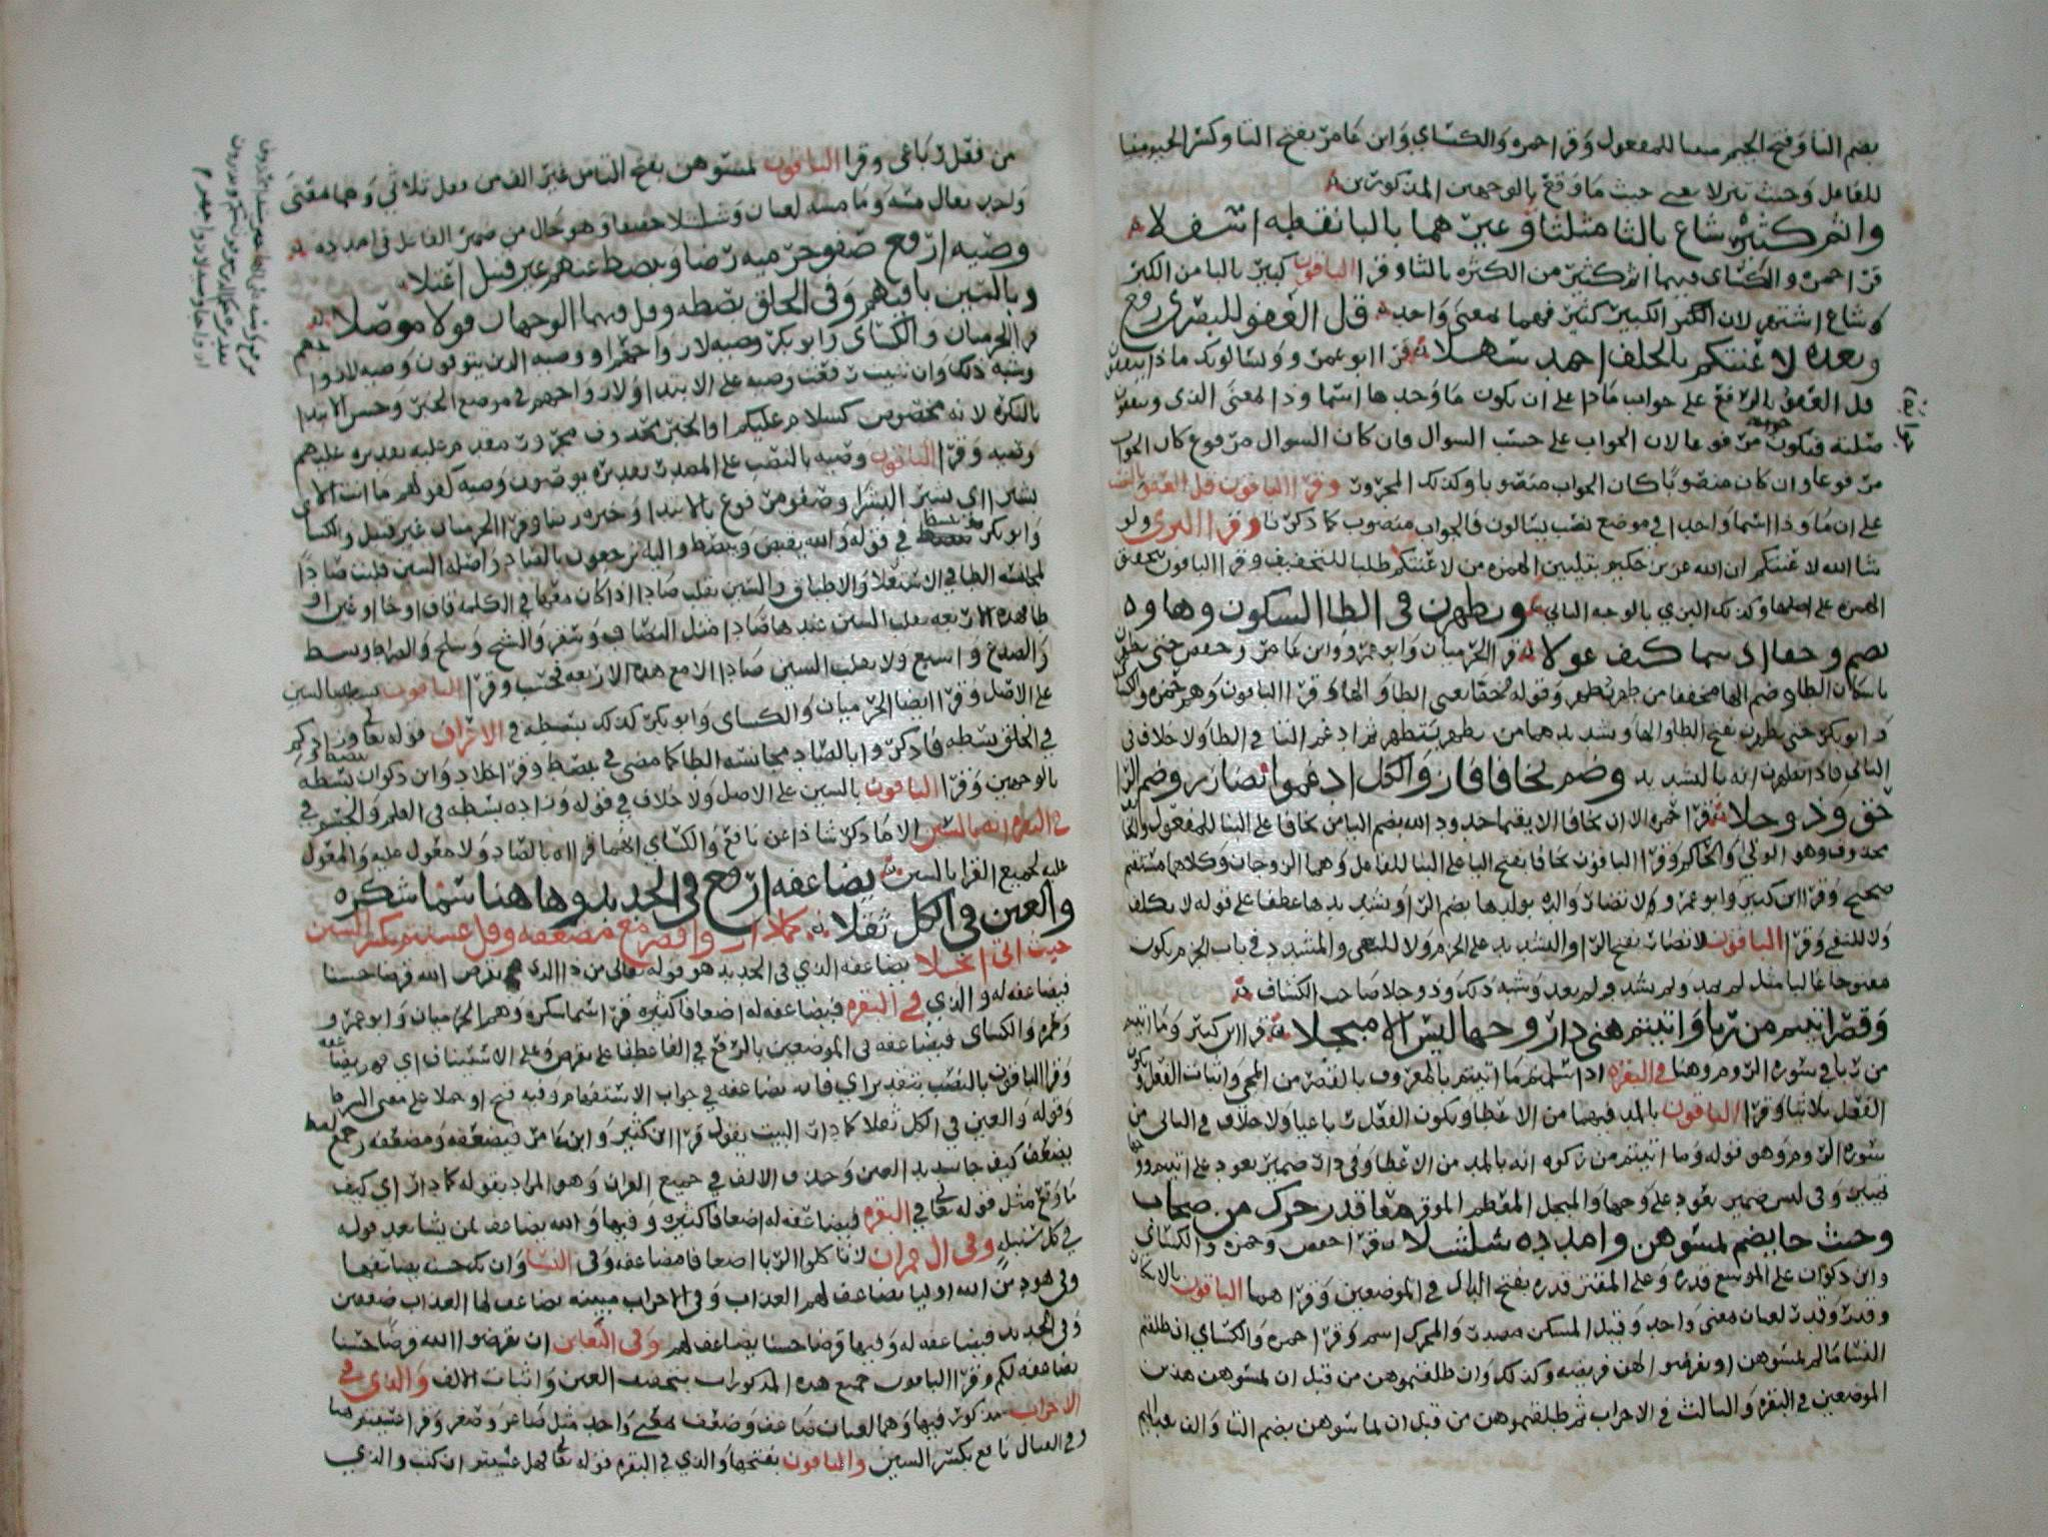 بضم التا وفتح الجيم مبنيا للمفعول وقرا حمزه والكساي وابن عامر بفتح التا وكسر الجيم مبنيا
للفاعل وحيث تنزلا يعني حيث ما وقع بالوجهين المذكورين
واثم كثير شاع بالثا مثلثا وغيرهما بالبا نقطه اسفلا
قرا حمزه والكساي فيهما اثم كثير من الكثره بالثا وقرا الباقون كبير بالبا من الكبر
وشاع اشتهر لان الكثير الكبير كثير فهما بمعنى واحد قل العفو للبصري رفع
وبعده لاعنتكم بالخلف احمد سهلا قرا ابو عمرو ويسالونك ماذا ينفقون
قل العفو بالرفع على جواب ماذا على ان يكون ما وحدها اسما وذا بمعنى الذي وينفقون
صلته فيكون جوابه مرفوعا لان الجواب على حسب السوال فان كان السوال مرفوع كان الجواب
مرفوعا وان كان منصوبا كان الجواب منصوبا وكذلك المجرور وقرا الباقون قل العفو بالنصب
على ان ما وذا اسما واحدا في موضع نصب بيسالون فالجواب منصوب كما ذكرنا وقرا البزي ولو
شا الله لاعنتكم ان الله عزيز حكيم بتليين الهمزه من لاعنتكم طلبا للتخفيف وقرا الباقون بتحقيق
الهمزه على اصلها وكذلك البزي بالوجه الثاني ويطهرن في الطا السكون وهاوه
يضم وخفا اذ سما كيف عولا قرا الحرميان وابو عمرو وابن عامر وحفص حتى يطهرن
باسكان الطا وضم الها مخففا من طهر يطهر وقوله خفا يعني الطا والها وقرا الباقون وهم حمزه والكسا
وابو بكر حتى يطهرن بفتح الطا والها وتشديدهما من يطهر يتطهر ثم ادغم التا في الطا ولا خلاف في
الثاني فاذا تطهرن انه بالتشديد وضم يخافا فاز والكل ادغموا تضارر وضم الرا
حق وذو جلا قرا حمزه الا ان يخافا الا يقيما حدود الله بضم اليا من يخافا على البنا للمفعول
محذوف وهو الولي والحاكم وقرا الباقون يخافا بفتح اليا على البنا للفاعل وهما الزوجان وكلاهما مستقيم
صحيح وقرا ابن كثير وابو عمرو لا تضار والده بولدها بضم الرا وتشديدها عطفا على قوله لا تكلف
ولا للنفي وقرا الباقون لا تضار بفتح الرا والتشديد على الجزم ولا للنهي والمشدد في باب الجزم يكون
مفتوحا غالبا مثل لم يمد ولم يشد ولم يعد وشبه ذلك وذو جلا صاحب الكشاف
وقصر اتيتم من ربا واتيتم هنا دار وجها ليس الا مبجلا قرا ابن كثير وما اتيتم
من ربا في سوره الروم وهنا في البقره اذا سلمتم ما اتيتم بالمعروف بالقصر من المجي واثبات الفعل ويكون
الفعل ثلاثيا وقرا الباقون بالمد فيهما من الاعطا ويكون الفعل رباعيا ولا خلاف في الثاني من
سوره الروم وهو قوله وما اتيتم من زكوه انه بالمد من الاعطا وفي دار ضمير يعود على اتيتم
وفي ليس ضمير يعود على وجها والمبجل المعظم الموقر معا قدر حرك من صحاب
وحيث جا يضم تمسوهن وامدده شلشلا قرا حفص وحمزه والكساي
وابن ذكوان على الموسع قدره وعلى المقتر قدره بفتح الدال في الموضعين وقراهما الباقون بالاسكان
وقدر وقدر لغتان بمعنى واحد وقيل المسكن مصدر والمحرك اسم وقرا حمزه والكساي ان طلقتم
النسا ما لم تمسوهن او تفرضوا لهن فريضه وكذلك وان طلقتموهن من قبل ان تمسوهن هذين
الموضعين في البقره والثالث في الاحزاب ثم طلقتموهن من قبل ان تماسوهن بضم التا والف بعد الميم
من فعل رباعي وقرا الباقون تمسوهن بفتح التا من غير الف من فعل ثلاثي وهما بمعنى
واحد يقال مسه وماسه لغتان وشلشلا خفيفا وهو حال من ضمير الفاعل في امدده
وصيه ارفع صفو حرميه رضا ويبصط عنهم غير قنبل اعتلا
وبالسين باقيهم وفي الخلق بصطه وقل فيهما الوجهان قولا موصلا
قرا الحرميان والكساي وابو بكر وصيه لازواجهم او وصيه الذين يتوفون وصيه لازوا
وشبه ذلك وان شيت رفعت وصيه على الابتدا ولازواجهم في موضع الخبر وحسن الابتدا
بالنكره لانه تخصوص كسلام عليكم او الخبر محذوف مجرور مقدم عليه تقديره عليهم
وصيه وقرا الباقون وصيه بالنصب على المصدر تقديره يوصون وصيه كقولهم ما انت الا
سير اي تسير السير وصفو مرفوع بالابتدا وخبره رضا وقرا الحرميان غير قنبل والكسا
وابو بكر في قوله والله يقبض ويبصط واليه ترجعون بالصاد واصله السين قلبت صادا
لمجانسه الطا في الاستعلا والاطباق والسين تقلب صادا اذا كان معها في الكلمه قاف او خا او غين او
طا فهذه الاربعه يقلب السين عندها صادا مثل البصاق وسقر والشيخ وسلخ والصراط وبسط
والصدغ واسبغ ولا يقلب السين صادا الا مع هذه الاربعه فحسب وقرا الباقون يبسط بالسين
على الاصل وقرا ايضا الحرميان والكساي وابو بكر كذلك بسطه في الاعراف قوله تعالى وزادكم
في الخلق بسطه فاذكروا بالصاد مجانسه الطا كما مضى في يبصط وقرا خلاد وابن ذكوان بسطه
بالوجهين وقرا الباقون بالسين على الاصل ولا خلاف في قوله وزاده بسطه في العلم والجسم في
في البقره انه بالسين الا ما ذكر شاذا عن نافع والكساي انهما قراه بالصاد ولا معول عليه والمعول
عليه لجميع القرا بالسين يضاعفه ارفع في الحديد وها هنا سما شكره
والعين في الكل ثقلا كما دار واقصر مع مضعفه وقل عسيتم بكسر السين
حيث اتى انجلا يضاعفه الذي في الحديد هو قوله تعالى من ذا الذي يقرض الله قرضا حسنا
فيضاعفه له والذي في البقره فيضاعفه له اضعافا كثيره قرا سما شكره وهم الحرميان وابو عمرو و
وحمزه والكساي فيضاعفه في الموضعين بالرفع في الفا عطفا على يقرض وعلى الاستيناف اي فهو يضاعفه
وقرا الباقون بالنصب بتقدير اي فانه يضاعفه في جواب الاستفهام وفيه فتح او حملا على معنى
وقوله والعين في الكل ثقلا كما دار البيت يقول قرا ابن كثير وابن عامر فيضعفه ومضعفه وجميع لفظ
يضعف كيف جا بتشديد العين وحذف الالف في جميع القران وهو المراد بقوله كما دار اي كيف
ما وقع مثل قوله تعالى في البقره فيضاعفه له اضعافا كثيره وفيها والله يضاعف لمن يشا بعد قوله
في كل سنبله وفي ال عمران لا تاكلوا الربا اضعافا مضاعفه وفي النسا وان تك حسنه يضاعفها
وفي هود من الله اوليا يضاعف لهم العذاب وفي الاحزاب مبينه يضاعف لها العذاب ضعفين
وفي الحديد فيضاعفه له وفيها قرضا حسنا يضاعف لهم وفي التغابن ان تقرضوا الله قرضا حسنا
يضاعفه لكم وقرا الباقون جميع هذه المذكورات بتخفيف العين واثبات الالف والذي في
الاحزاب مذكور فيها وهما لغتان ضاعف وضعف بمعنى واحد مثل صاعر وصعر وقرا عسيتم هنا
وفي القتال نافع بكسر السين والباقون بفتحها والذي في البقره قوله تعالى هل عسيتم ان كتب والذي